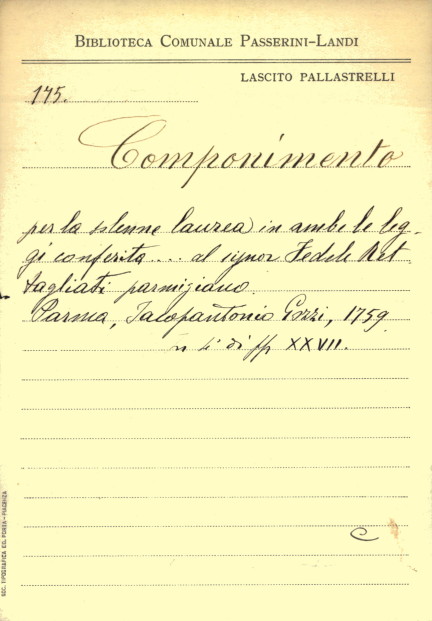 BIBLIOTECA COMUNALE PASSERINI-LANDI
LASCITO PALLASTRELLI
175.
Componimento
per la solenne laurea in ambe le leg-
gi conferita .... al signor Fedele
tagliati parmigiano.
Parma, Jacopantonio Gozzi, 1759
di ff XXVII.
C
SOC. TIPOGRAFICA ED. PORTA-PIACENZA